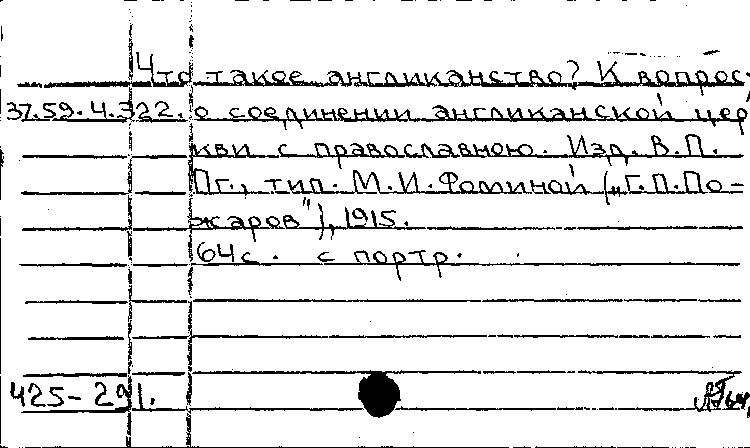 Что такое англиканство? К вопрос.
37.59.4.322. о соединении англиканской цер
кви с православною. Изд. В.П.
Пг., тип. М.И. Фоминой („Г.П.По-
жаров"), 1915.
64 с. с портр.
425-291.